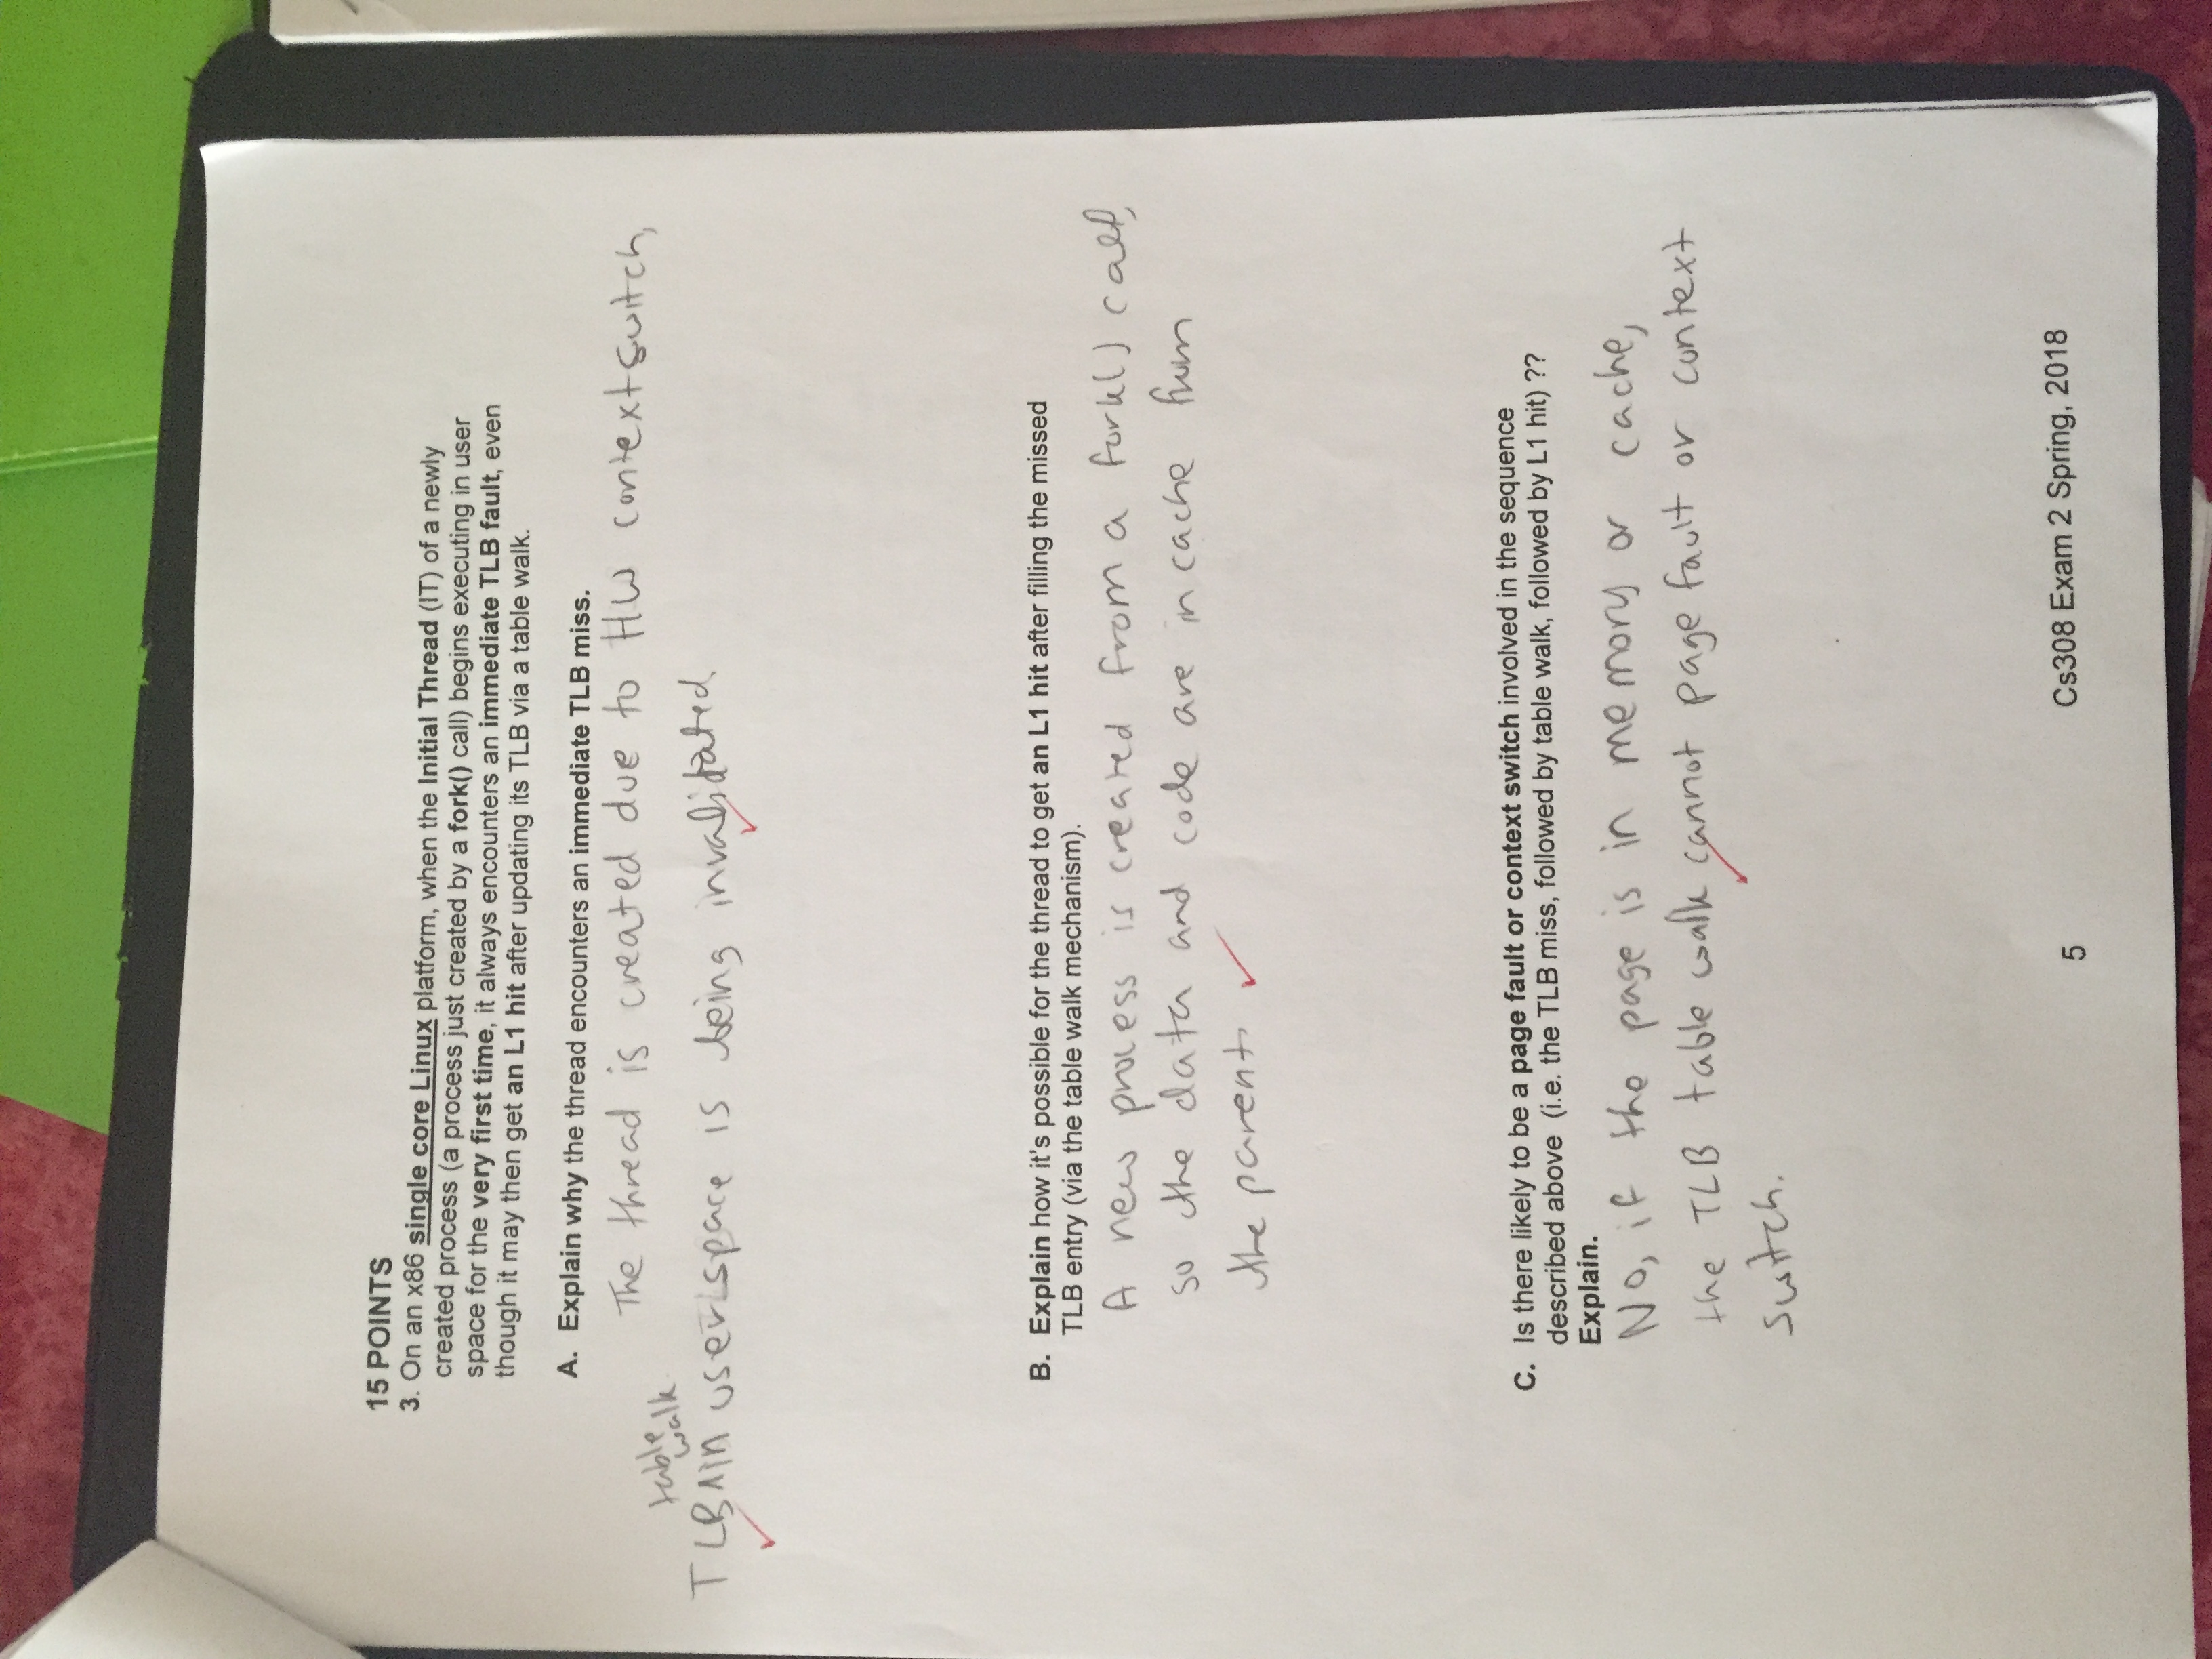 15 POINTS
3. On an x86 single core Linux platform, when the Initial Thread (IT) of a newly
created process (a process just created by a fork() call) begins executing in user
space for the very first time, it always encounters an immediate TLB fault, even
though it may then get an L1 hit after updating its TLB via a table walk.
A. Explain why the thread encounters an immediate TLB miss.
The thread is created due to HW context switch,
table walk
TLB in user space is being invalidated
B. Explain how it's possible for the thread to get an L1 hit after filling the missed
TLB entry (via the table walk mechanism).
A new process is created from a fork() call,
so the data and code are in cache from
the parent.
C. Is there likely to be a page fault or context switch involved in the sequence
described above (i.e. the TLB miss, followed by table walk, followed by L1 hit) ??
Explain.
No, if the page is in memory or cache,
the TLB table walk cannot page fault or context
switch.
5
Cs308 Exam 2 Spring, 2018